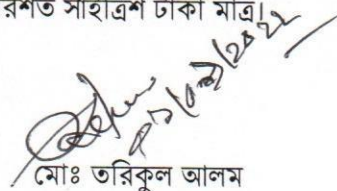 রশত সাঁইত্রিশ টাকা মাত্র।
মোঃ তরিকুল আলম